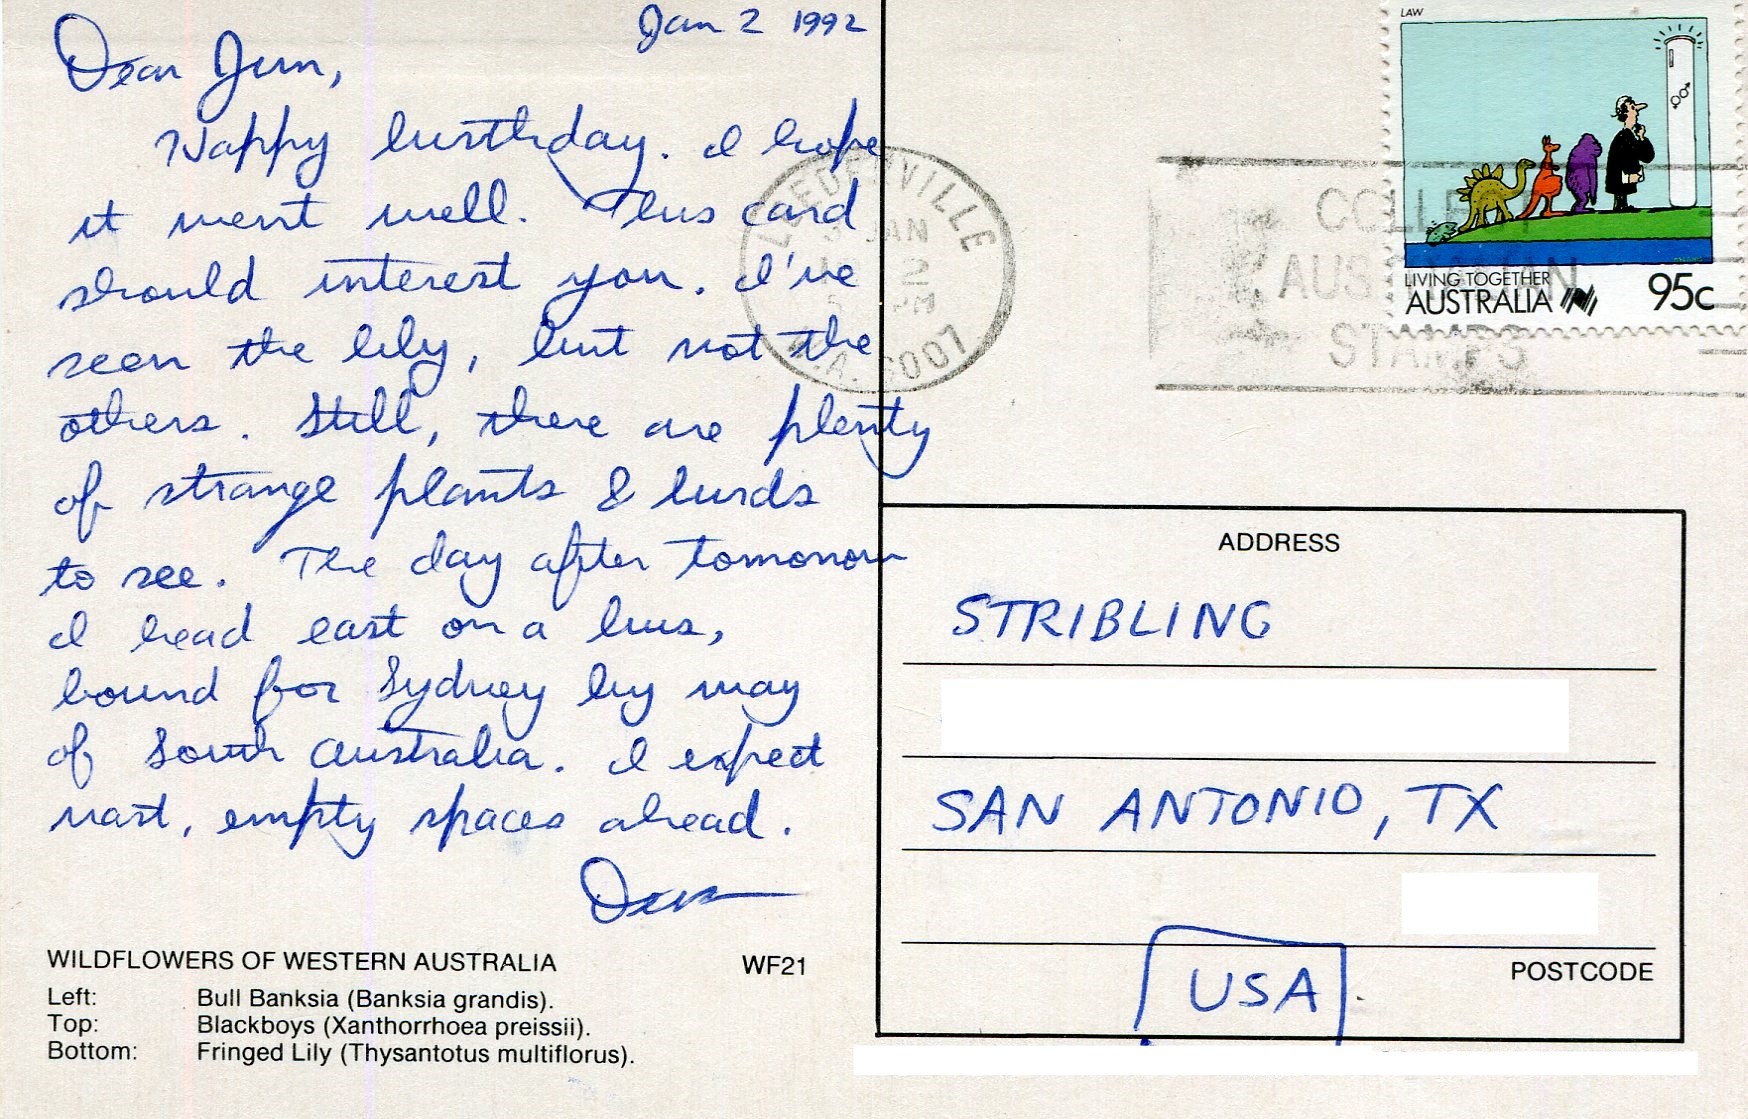 Jan 2 1992
Dear Jim,
Happy birthday. I hope
it went well. This card
should interest you. I've
seen the lily, but not the
others. Still, there are plenty
of strange plants & birds
to see. The day after tomorrow
I head east on a bus,
bound for Sydney by way
of South Australia. I expect
vast, empty spaces ahead.
WILDFLOWERS OF WESTERN AUSTRALIA WF21
Left: Bull Banksia (Banksia grandis).
Top: Blackboys (Xanthorrhoea preissii).
Bottom: Fringed Lily (Thysantotus multiflorus).
LAW
LIVING TOGETHER
AUSTRALIA 95c
LEEDERVILLE
JAN
PM
W.A. 6007
COLLECT
AUSTRALIAN
STAMPS
ADDRESS
STRIBLING
SAN ANTONIO, TX
USA
POSTCODE